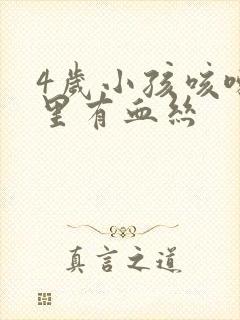 4歲小孩咳嗽
里有血絲
真言之道